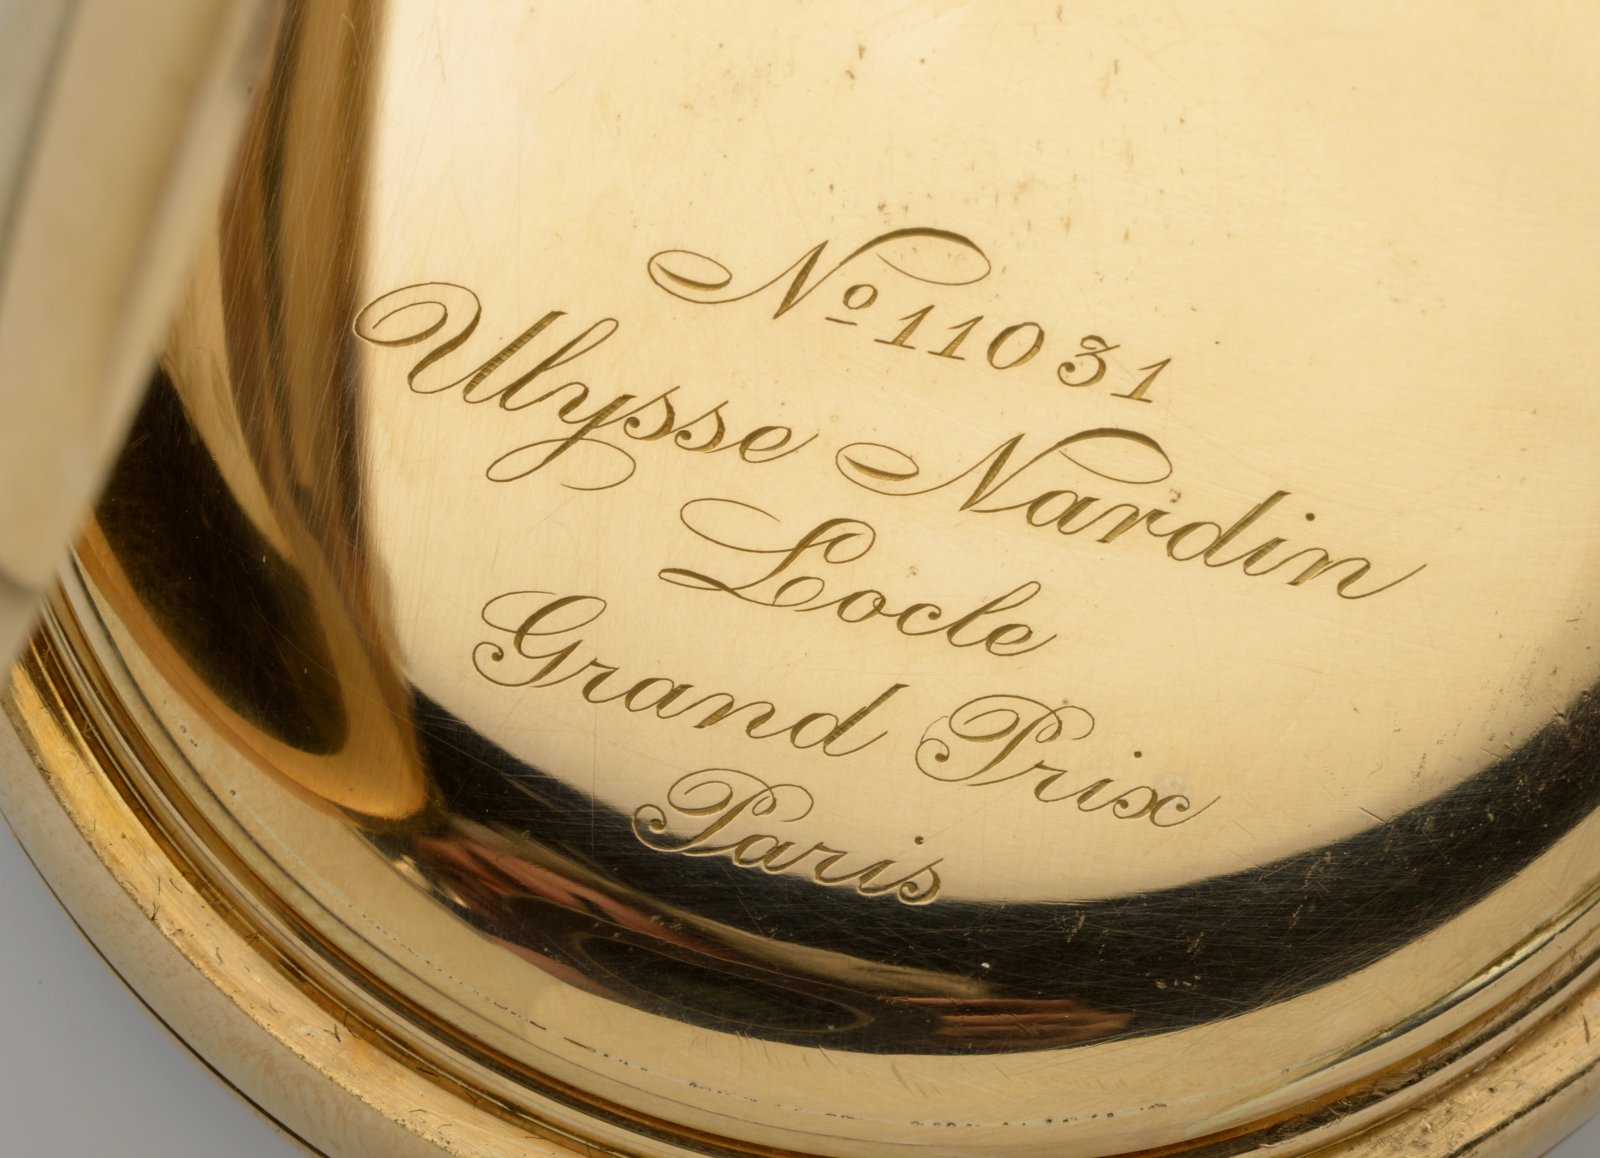 Nº 11031
Ulysse Nardin
Locle
Grand Prix
Paris